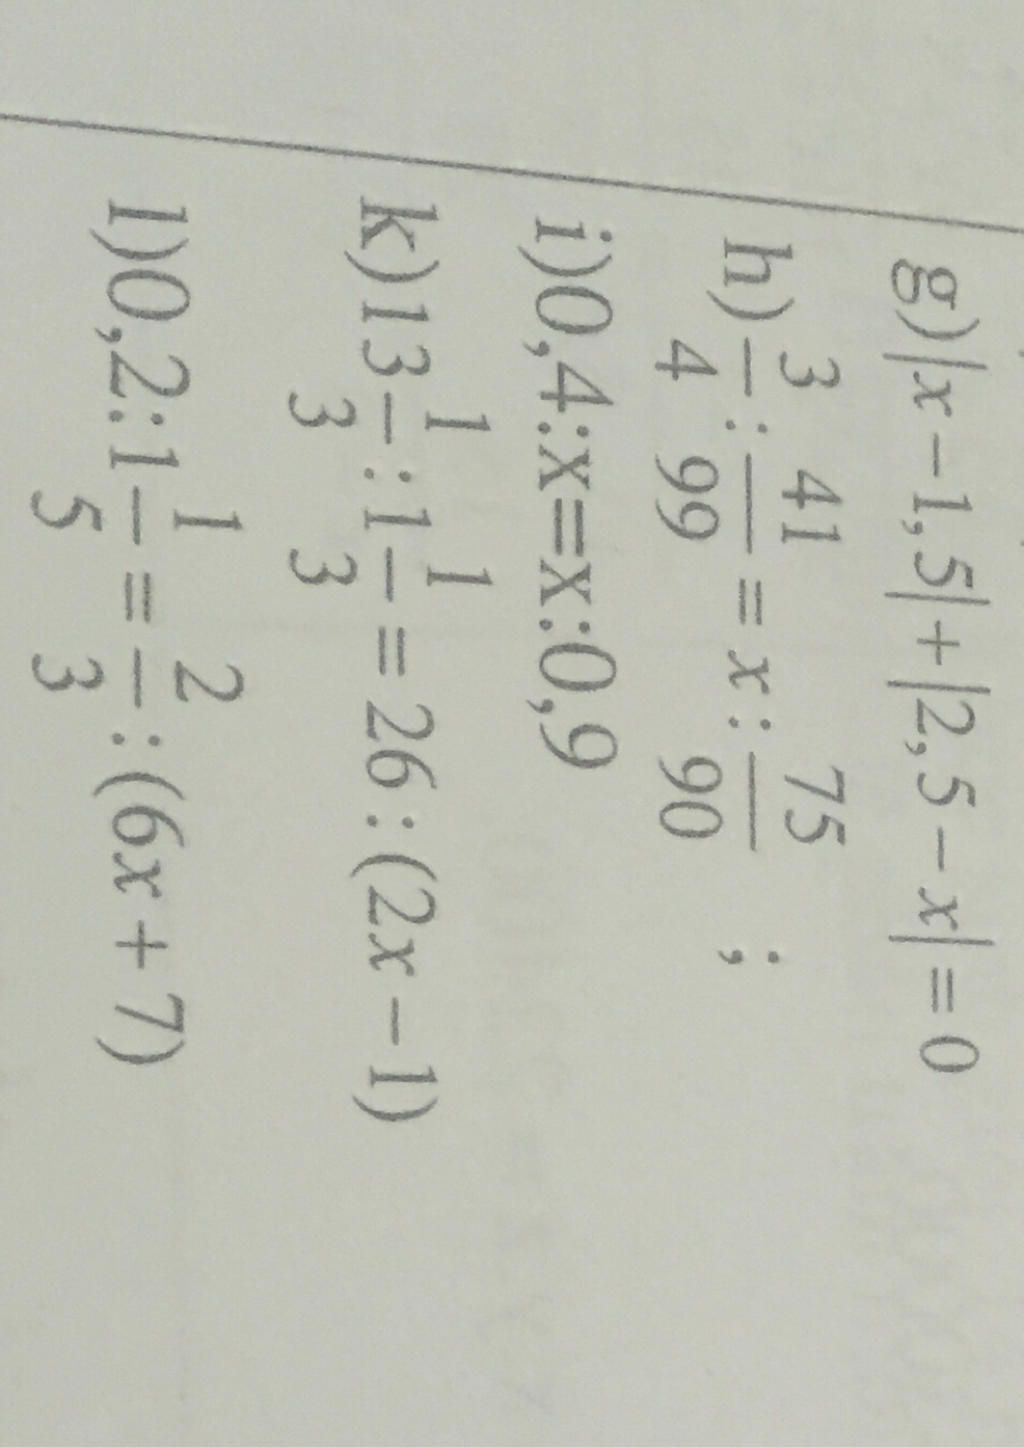 g)|x−1,5|+|2,5−x|=0
h) 3/4 : 41/99 = x : 75/90 ;
i)0,4:x=x:0,9
k)13 1/3 : 1 1/3 = 26 : (2x−1)
l)0,2:1 1/5 = 2/3 : (6x+7)